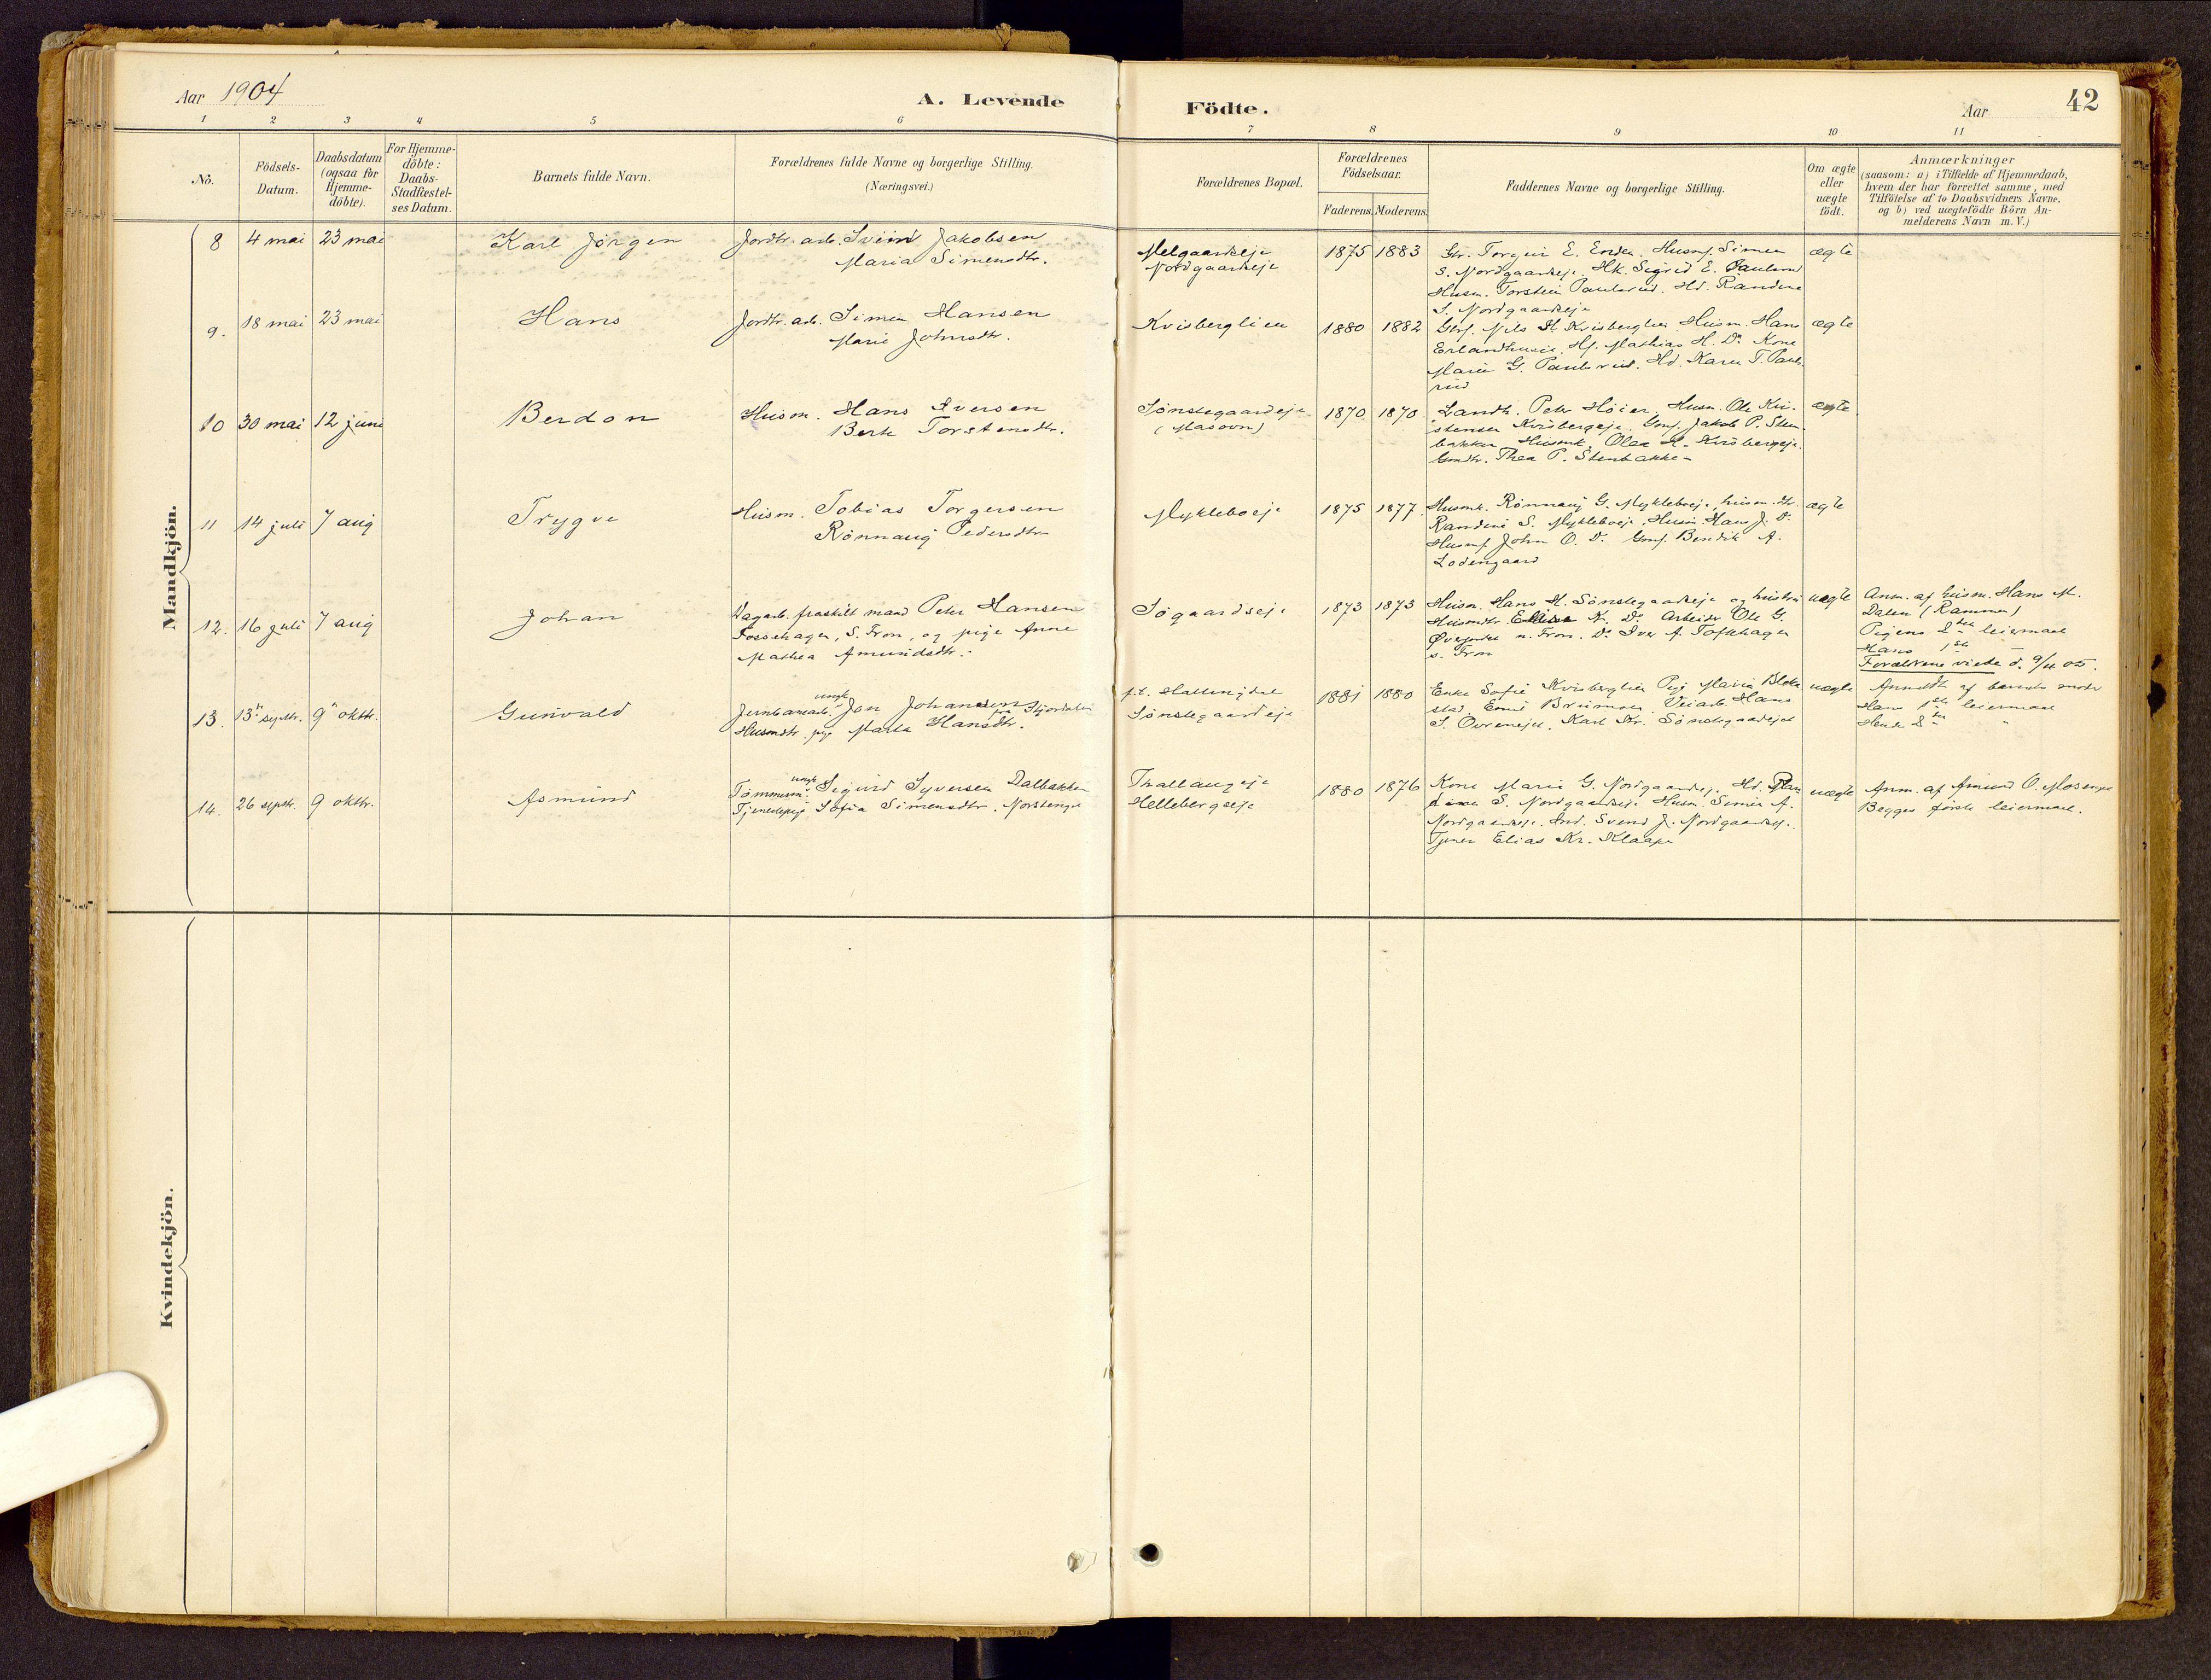 Aar 1904
A. Levende
Födte.
Aar
42
1 2 3 4 5 6 7 8 9 10 11
No.
Födsels-
Datum.
Daabsdatum
(ogsaa for
Hjemme-
döbte).
For Hjemme-
döbte:
Daabs-
Stadfæstel-
ses Datum.
Barnets fulde Navn.
Forældrenes fulde Navne og borgerlige Stilling.
(Næringsvei.)
Forældrenes Bopæl.
Forældrenes
Födselsaar.
Faderens. Moderens.
Faddernes Navne og borgerlige Stilling.
Om ægte
eller
uægte
födt.
Anmærkninger
(saasom: a) i Tilfælde af Hjemmedaab,
hvem der har forrettet samme, med
Tilföielse af to Daabsvidners Navne,
og b) ved uægtefödte Börn An-
melderens Navn m. V.)
Mandkjön.
8 4 mai 23 mai Karl Jørgen
Jordbr. arb. Svein Jakobsen
Maria Simensdtr.
Melgaardseje
Nordgaardseje
1875 1883
Torgeir E. Enden, Husmf. Simen
S. Nordgaardseje. Hk. Sigrid E. Paulsrud
Husm. Torstein Paulsrud. Hd. Randine
S. Nordgaardseje
ægte
9. 18 mai 23 mai Hans
Jordbr. arb. Simen Hansen
Marie Johnsdtr.
Kvisberglien
1880 1882
Nils H. Kvisberglien. Husm. Hans
Erlandhuseie, Hf. Mathias H. Do. Kone
Marie G. Paulsrud. Hd. Karen T. Pauls
rud
ægte
10 30 mai 12 juni Berdon
Husm. Hans Iversen
Berte Torstensdtr.
Sønstegaardseje
(Masovn)
1870 1870
Landh. Peter Høier, Husm. Ole Kri-
stensen Kvisbergeje. Gmf. Jakob P. Sten-
bakken Husmk. Olea H. Kvisbergeje.
Gmdtr. Thea P. Stenbakken
ægte
11 14 juli 7 aug Trygve
Husm. Tobias Torgersen
Rønnaug Pedersdtr
Mykleboeje
1875 1877
Husmk. Rønnaug G. Mykleboeje, husm. dtr.
Randine S. Mykleboeje, Husm. Hans J. Do.
Husmf John O. Do. Gmf. Bendik A.
Lodengaard
ægte
12. 16 juli 7 aug Johan
Dagarb. fraskilt mand Peter Hansen
Fossehagen, S. Fron, og pige Anne
Mathea Amundsdtr.
Søgaardseje
1873 1873
Husm. Hans H. Sønstegaardseje og hustru
Husmdtr. Elise N. Do. Arbeider Ole G.
n. Fron. Do. Iver A. Toftehagen
s. Fron
uægte
Anm. af husm. Hans M.
Dalen (Rammen)
Pigens 2det leiermaal
Hans 1ste —
Forældrene viede d. 9/4 05.
13. 13de septr. 9de oktbr. Gunvald
ungk
Jernbanearb. Jon Johansen fra Stjordalen
Husmdtr. pige Marte Hansdtr.
p.t. Hallingdal
Sønstegaardseje
1881 1880
Enke Sofie Kvisberglien Pige Marie Blek-
stad. Brumoen. Veiarb. Hans
S. Karl Kr. Sønstegaardsejet
uægte
Anmeldt af barnets moder
Hans 1ste leiermaal
Hendes 2det "
14. 26 septr. 9 oktbr. Asmund
ungk
Tømmerm. Sigurd Syversen Dalbakken
Tjenestepige Sofia Simensdtr. Norstenge
Thallaugeje
Hellebergseje
1880 1876
Kone Marie G. Nordgaardseje. Hd. Ran
dine S. Nordgaardseje Husm. Simen A.
Nordgaardseje. Ind. Svend J. Nordgaardseje.
Tjener Elias Kr. Klaape
uægte
Anm. af Amund O. Mosenge
Begges første leiermaal.
Kvindekjön.